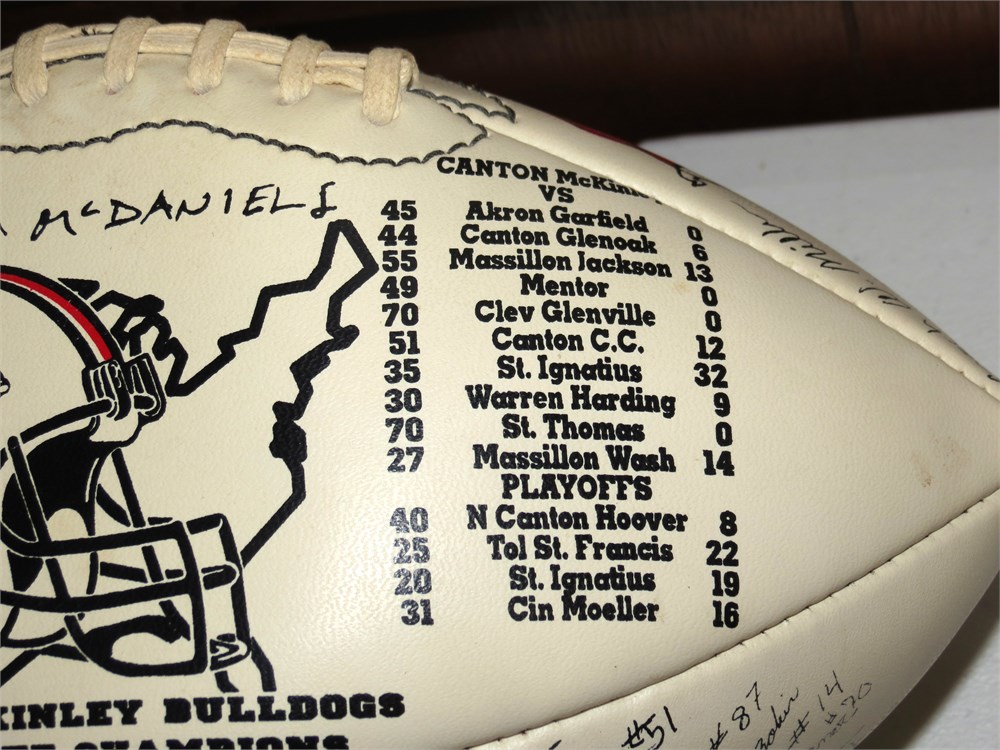 McDANIELS
CANTON McKin
VS
45 Akron Garfield 0
44 Canton Glenoak 6
55 Massillon Jackson 13
49 Mentor 0
70 Clev Glenville 0
51 Canton C.C. 12
35 St. Ignatius 32
30 Warren Harding 9
70 St. Thomas 0
27 Massillon Wash 14
PLAYOFFS
40 N Canton Hoover 8
25 Tol St. Francis 22
20 St. Ignatius 19
31 Cin Moeller 16
KINLEY BULLDOGS
CHAMPIONS
#51
#87
#14